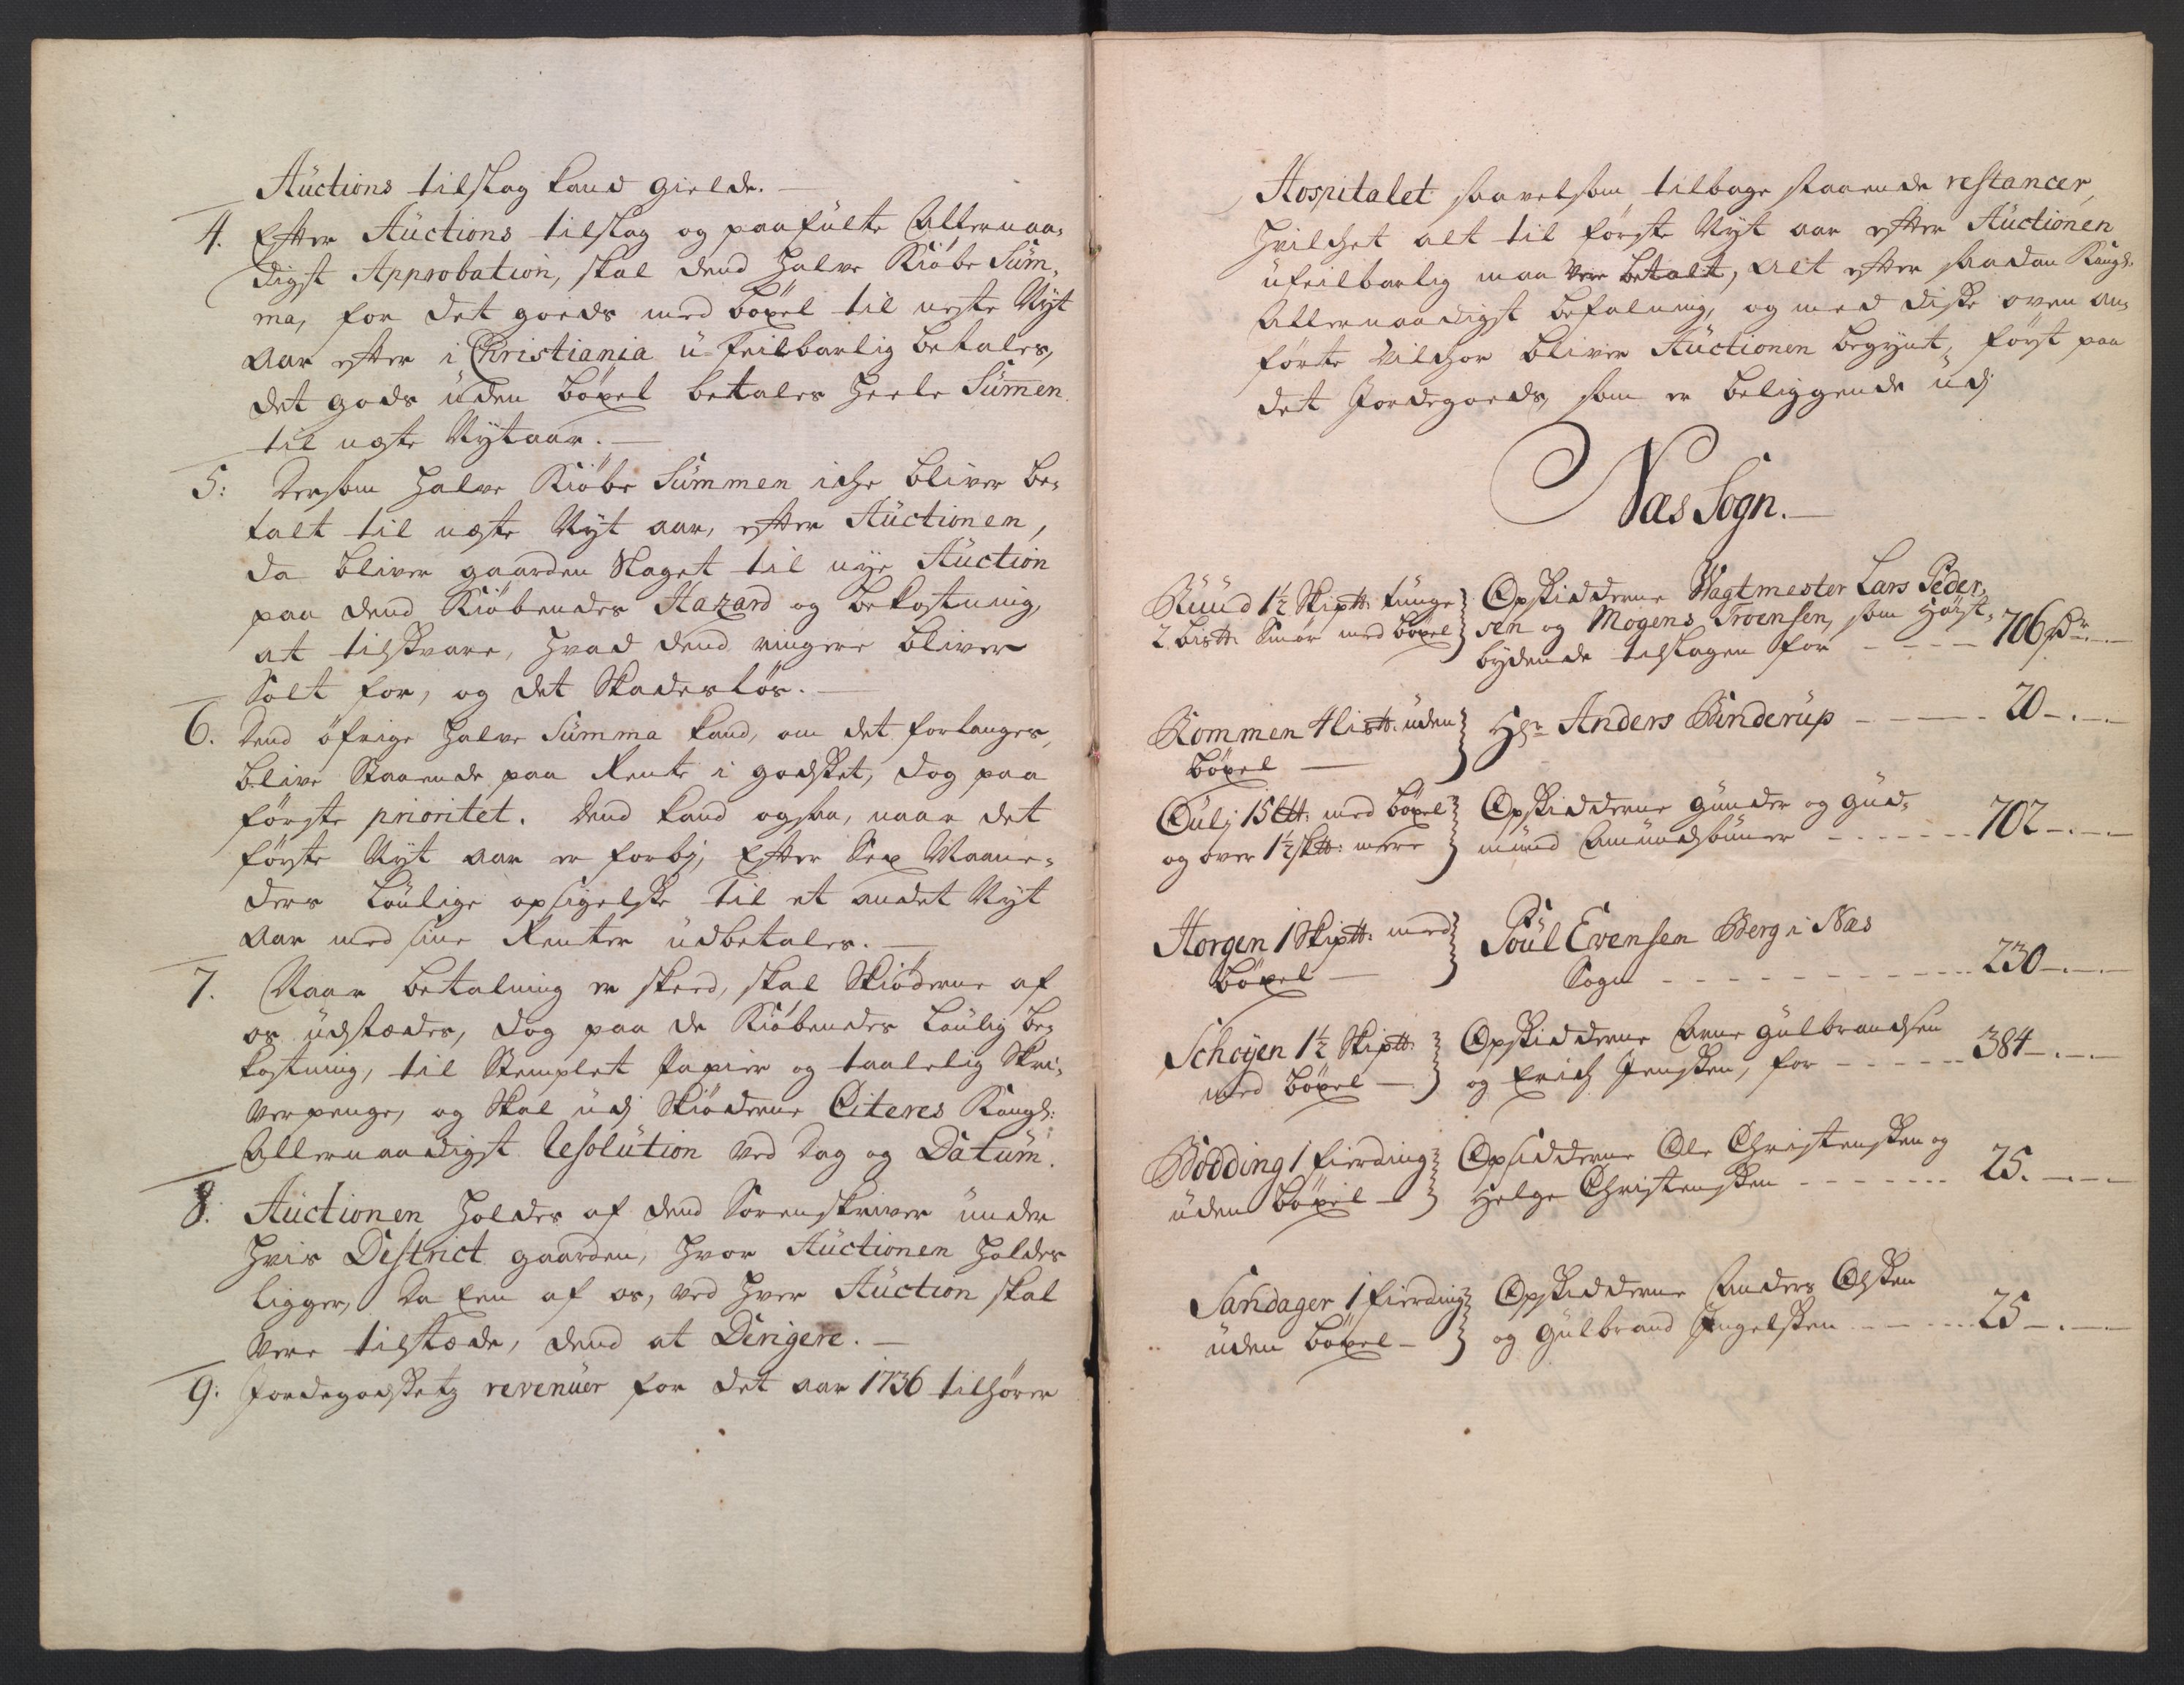 Auctions tilslag kand gielde.
4. Efter Auctions tilslag og paafulte Allernaa-
digst Approbation, skal dend halve Kiøbe Sum-
ma, for det goeds med böxel til neste Nyt
Aar efter i Christiania u-feilbarlig betales,
det gods uden böxel betales heele Summen
til neste Nytaar.
5: Dersom halve Kiøbe Summen iche bliver be-
talt til neste Nyt aar, efter Auctionen,
da bliver gaarden Slaget til nye Auction
paa dend Kiøbendes Hazard og bekostning,
at tilsvare, hvad dend ringere bliver
Solt for, og det Skadesløs.
6. Dend øfrige halve Summa kand, om det forlanges,
blive Staaende paa Rente i godset, dog paa
første prioritet. Dend kand ogsaa, naar det
første Nyt aar er forbj, Efter Sex Maane-
ders Loulige opsigelse til et andet Nyt
Aar med sine Renter udbetales.
7. Naar betalning er skeed, skal Skiøderne af
os udstædes, dog paa de Kiøbendes Loulig be-
kostning, til Stemplet Papiir og taalelig Skri-
verpenge, og skal udj Skiøderne Citeres Kongl:
Allernaadigst Resolution ved Dag og Datum.
8. Auctionen holdes af dend Sorenskriver under
hvis Destrict gaarden, hvor Auctionen holdes
ligger, Da Een af os, ved hver Auction skal
være tilstæde, dend at Dirigere.
9. Jordegodsetz revenuer for det aar 1736 tilhører
Hospitalet saavelsom tilbage staaende restancer,
hvilchet alt til første Nyt aar efter Auctionen
ufeilbarlig maa vere betalt, Alt efter saadan Kongl:
Allernaadigst befalning, og med diße oven an-
førte Vilchor bliver Auctionen begynt, først paa
det Jordegoeds, som er beliggende udj
Næs Sogn.
Ruud 1½ Skip℔: tunge
2 Bis℔: Smør med böxel
Opsidderne Wagtmester Lars Peder-
sen og Mogens Troensen, som Høist-
bydende tilslagen for 706 Rdr.
Rommen 4 lis℔: uden
böxel
Hr Anders Bunderup 20
Ouli 15 L℔: med böxel
og over 1½ sk℔: mere
Opsidderne Gunder og Gud-
mund Amundsønner 702
Horgen 1 Skip℔: med
böxel
Poul Evensen Berg i Næs
Sogn 230
Schøyen 1½ Skip℔:
med böxel
Opsidderne Arne Gulbrandsen
og Erich Jensen, for 384
Bodding 1 fierding
uden böxel
Opsidderne Ole Christensen og
Helge Christensen 25.
Sandager 1 fierding
uden böxel
Opsidderne Anders Olsen
og Gulbrand Ingelsen 25